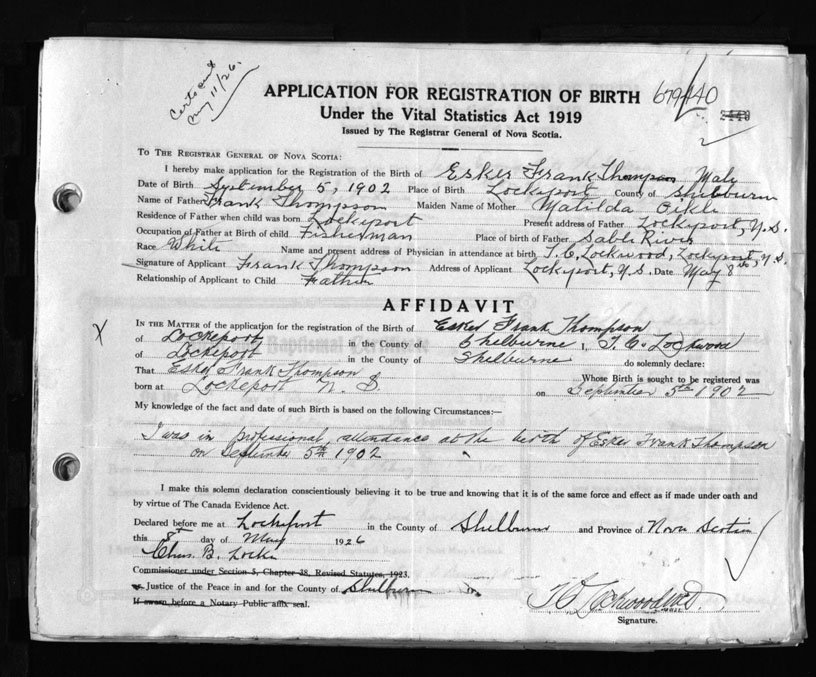 Certs sent
May 11/26.
APPLICATION FOR REGISTRATION OF BIRTH 679440
Under the Vital Statistics Act 1919
Issued by The Registrar General of Nova Scotia.
2
To The Registrar General of Nova Scotia:
I hereby make application for the Registration of the Birth of Esker Frank Thompson Male
Date of Birth September 5, 1902 Place of Birth Lockeport County of Shelburne
Name of Father Frank Thompson Maiden Name of Mother Matilda Oikle
Residence of Father when child was born Lockeport Present address of Father Lockeport, N.S.
Occupation of Father at Birth of child Fisherman Place of birth of Father Sable River
Race White Name and present address of Physician in attendance at birth T. C. Lockwood, Lockeport, N.S.
Signature of Applicant Frank Thompson Address of Applicant Lockeport, N.S. Date May 8th,
Relationship of Applicant to Child Father
AFFIDAVIT
X
In the Matter of the application for the registration of the Birth of Esker Frank Thompson
of Lockeport, in the County of Shelburne I, T. C. Lockwood
of Lockeport in the County of Shelburne do solemnly declare:
That Esker Frank Thompson Whose Birth is sought to be registered was
born at Lockeport N. S. on September 5th 1902
My knowledge of the fact and date of such Birth is based on the following Circumstances:—
I was in professional attendance at the birth of Esker Frank Thompson
on September 5th 1902
I make this solemn declaration conscientiously believing it to be true and knowing that it is of the same force and effect as if made under oath and
by virtue of The Canada Evidence Act.
Declared before me at Lockeport in the County of Shelburne and Province of Nova Scotia
this 8th day of May 1926
Chas. B. Locke
Commissioner under Section 5, Chapter 38, Revised Statutes, 1923.
or Justice of the Peace in and for the County of Shelburne
If sworn before a Notary Public affix seal.
T C Lockwood M.D.
Signature.